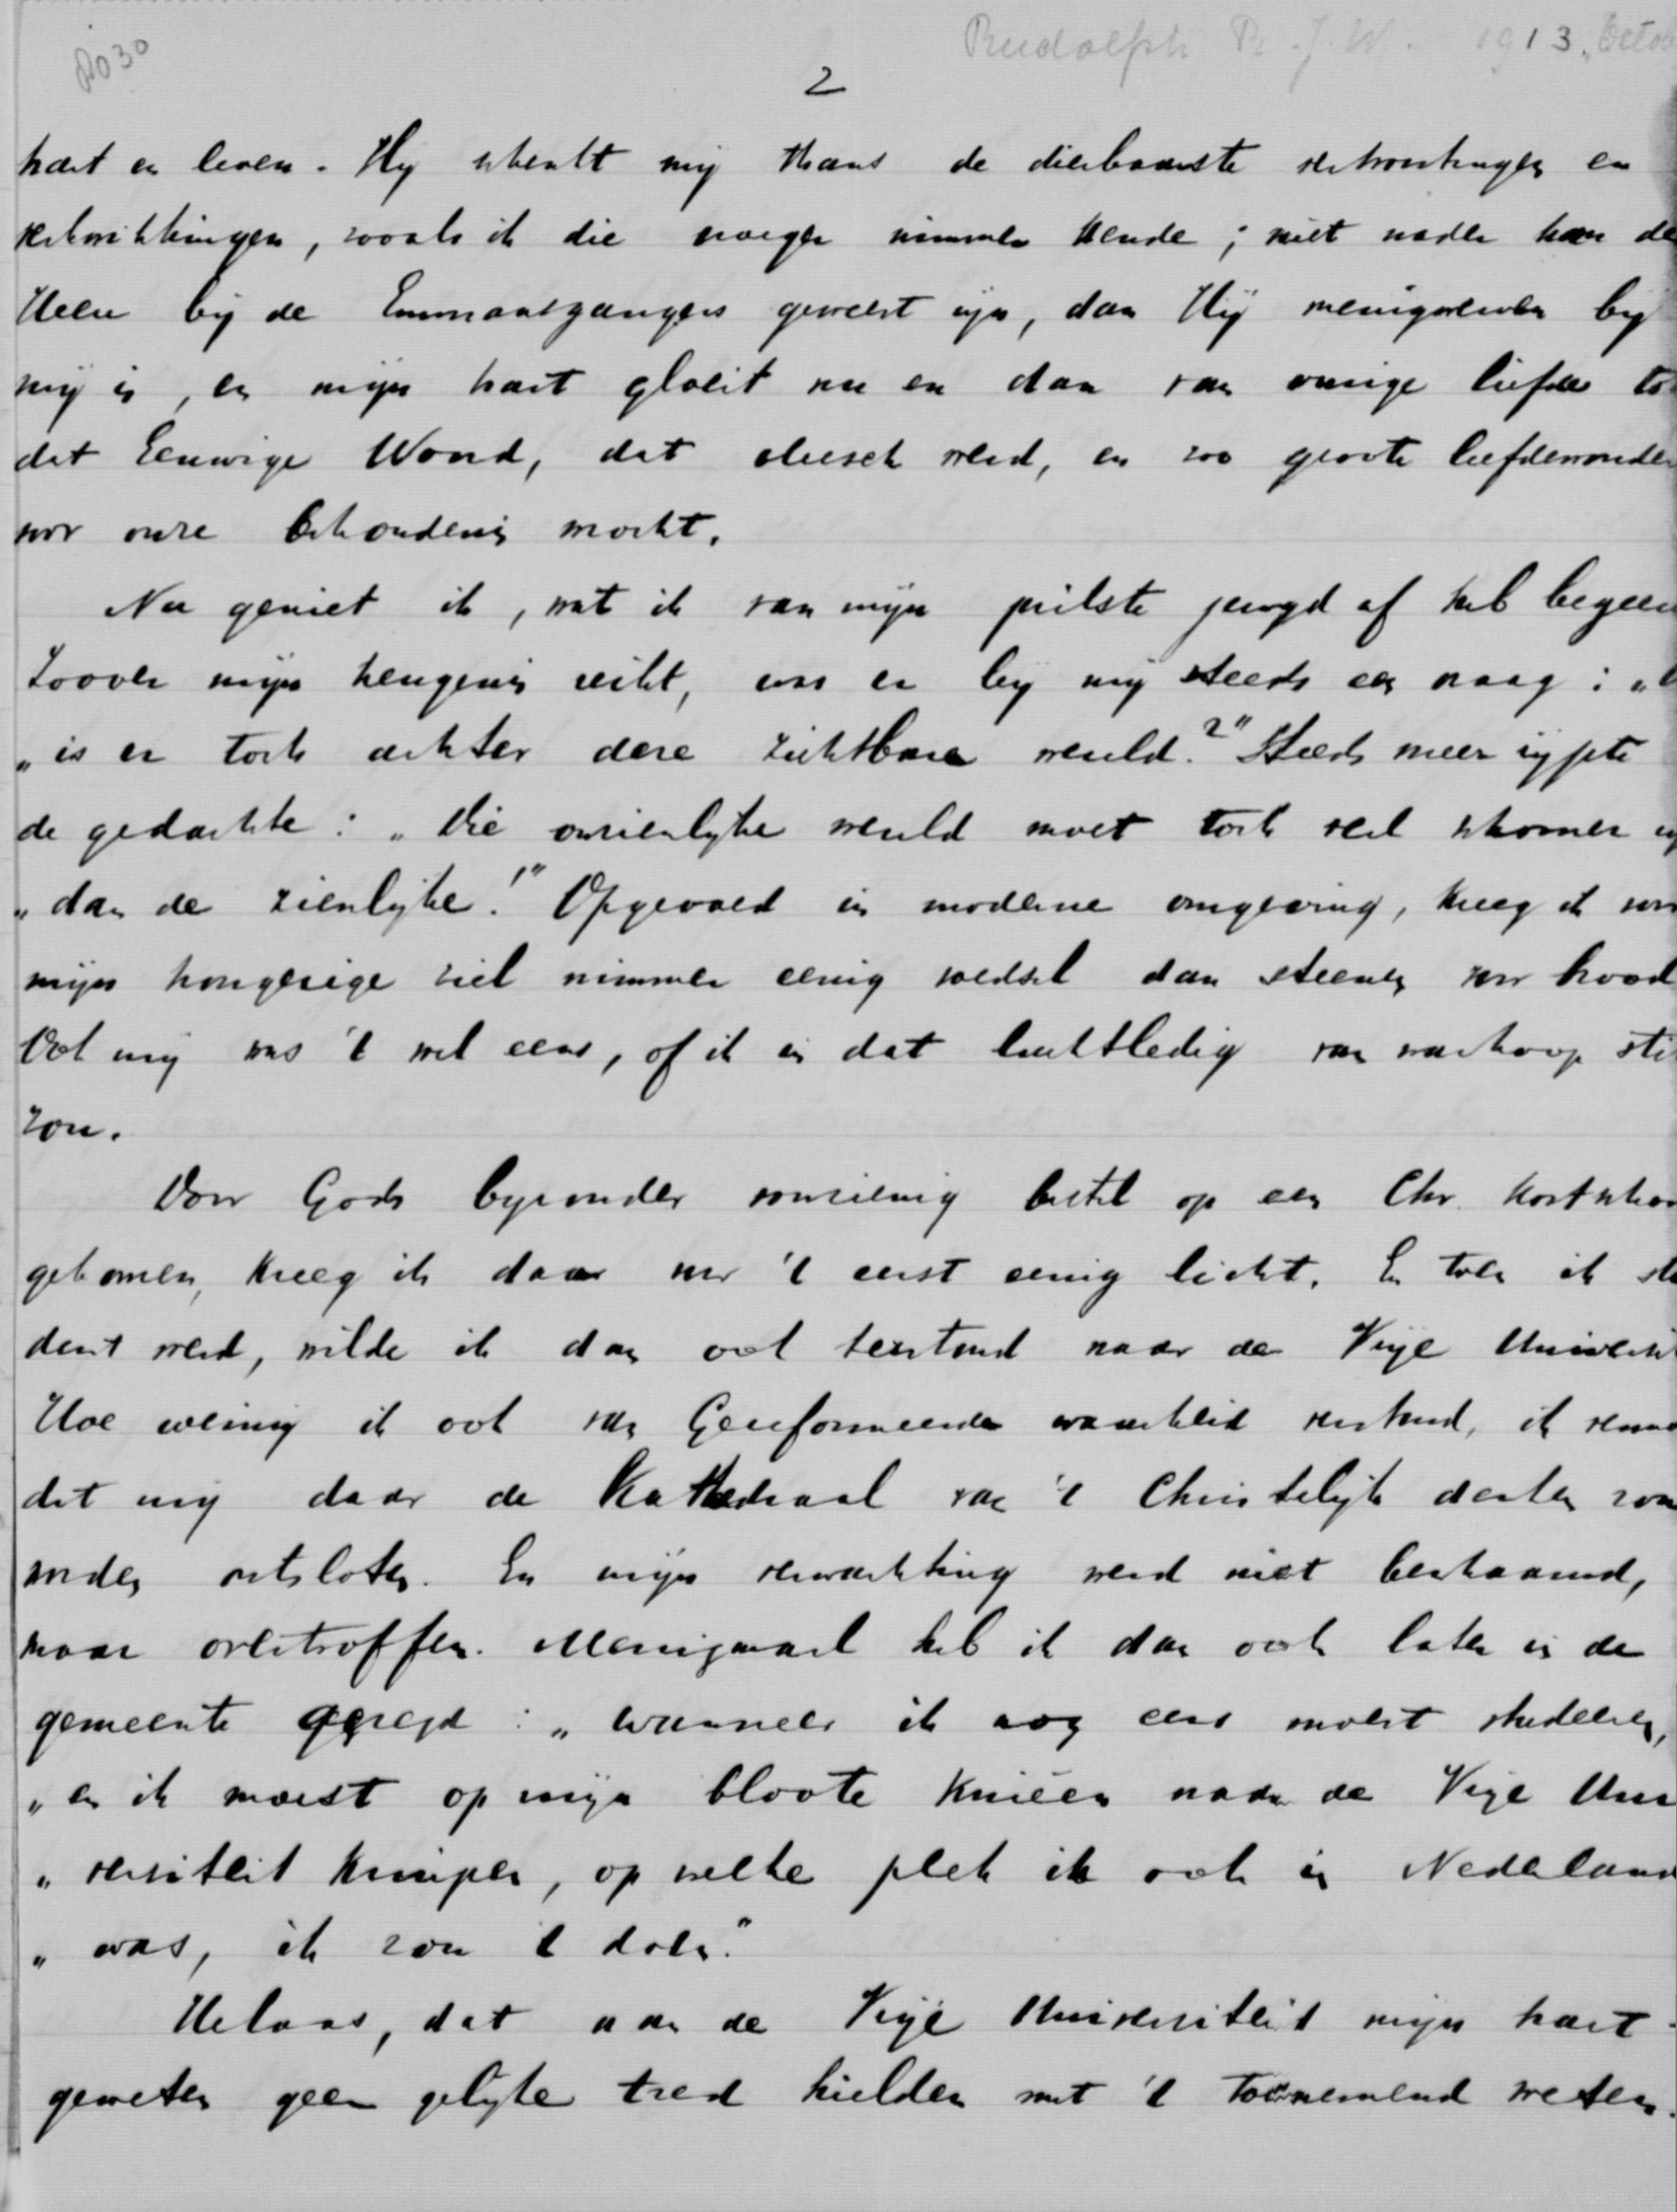 Rudolph R. J. W. 1913, Octob
2
hart en leven. Hij schenkt mij thans de dierbaarste vertroostingen en
verkwikkingen, zooals ik die vroeger nimmer kende; niet nader kan de
Heere bij de Emmausgangers geweest zijn, dan Hij menigwerven bij
mij is, en mijn hart gloeit nu en dan van innige liefde to
dat Eeuwige Woord, dat vleesch werd, en zoo groote liefdewonde
voor onze behoudenis wrocht.
Nu geniet ik, wat ik van mijn prilste jeugd af heb begeer
Zoover mijn heugenis reikt, was er bij mij steeds een vraag: „
„is er toch achter deze zichtbare wereld?" Steeds meer rijpte
de gedachte: „Die onzienlijke wereld moet toch veel schooner zij
„dan de zienlijke!" Opgevoed in moderne omgeving, kreeg ik voor
mijn hongerige ziel nimmer eenig voedsel dan steenen voor brood
Ook mij was 't wel eens, of ik in dat luchtledig van wanhoop sti
zou.
Door Gods bijzonder voorzienig bestel op een Chr. kostschoo
gekomen, kreeg ik daar voor 't eerst eenig licht. En toen ik stu
dent werd, wilde ik dan ook terstond naar de Vrije Universit
Hoe weinig ik ook van Gereformeerde waarheid verstond, ik vermo
dat mij daar de Kathedraal van 't Christelijk denken zou
worden ontsloten. En mijn verwachting werd niet beschaamd,
maar overtroffen. Menigmaal heb ik dan ook later in de
gemeente gezegd: „wanneer ik nog eens moest studeeren,
„en ik moest op mijn bloote knieën naar de Vrije Uni
„versiteit kruipen, op welke plek ik ook in Nederland
„was, ik zou 't doen."
Helaas, dat aan de Vrije Universiteit mijn hart-
geweten geen gelijke tred hielden met 't toenemend weten.